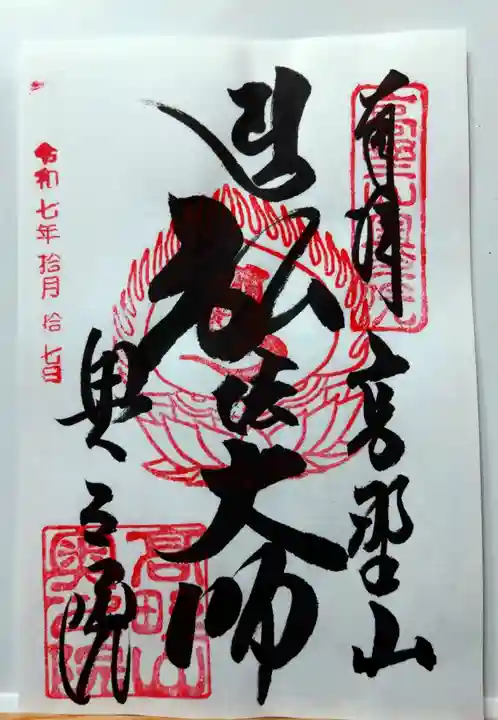 奉拝 高野山
弘法大師
奥之院
令和七年拾月拾七日